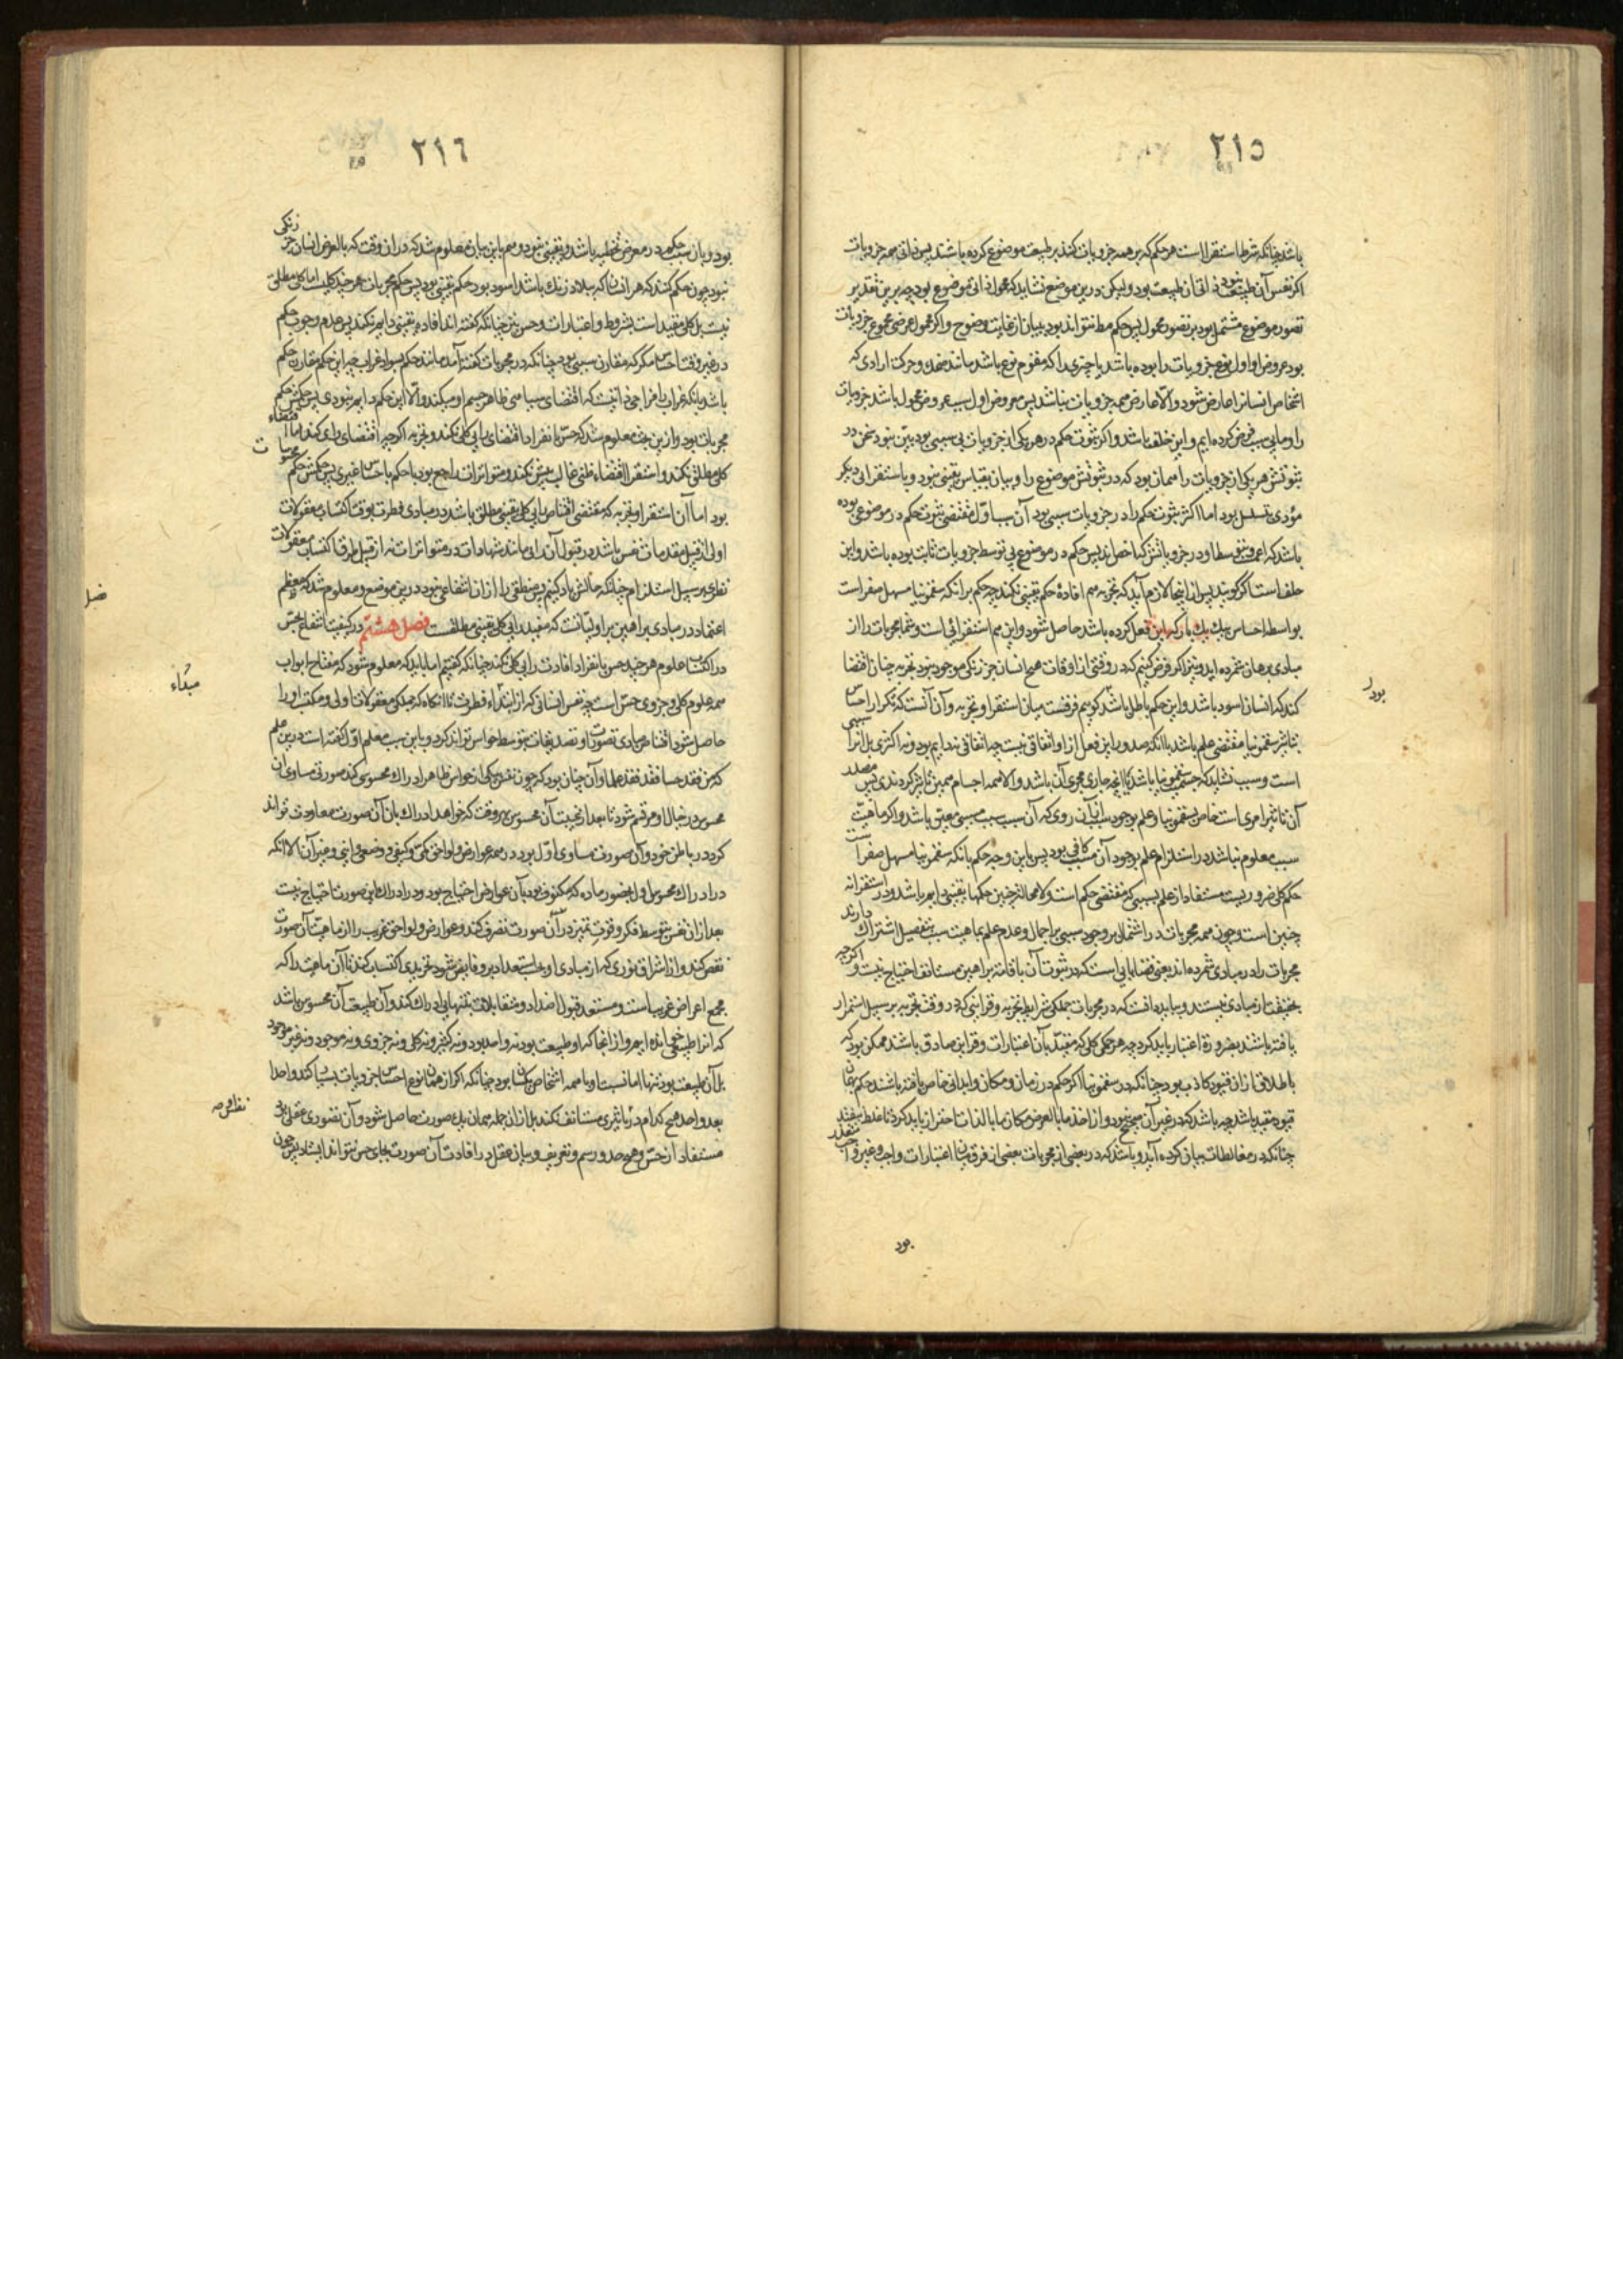 ٢١٥
باشد چنانکه شرط استقرا است هر حکم که بر همه جزویات کنند بر طبیعت موضوع کرده باشند پس ذاتی همه جزویات
اکر نفس آن طبیعت بود ذاتی آن طبیعت بود ولیکن درین موضع نشاید که محمول ذاتی موضوع بود چه برین تقدیر
تصور موضوع مشتمل بود بر تصور محمول پس حکم مطلق تواند بود بی بیان از غایت وضوح و اکر محمول عرضی مجموع جزویات
بود عروض او اول نوع جزویات را بوده باشد یا چیزی را که مقوم نوع باشد مانند ضحک و حرکت ارادی که
اشخاص انسانرا عارض شود و الا عارض همه جزویات نباشد پس معروض اول سبب عروض محمول باشد جزویات
را و ما بی سبب فرض کرده ایم و این خلف باشد و اکر ثبوت حکم در هر یکی از جزویات بی سببی بود بین نبود سخن در
ثبوتش هر یکی از جزویات را همان بود که در ثبوتش موضوع را و بیان بقیاس یقینی نبود و باستقرائی دیکر
مؤدی بتسلسل بود اما اکر ثبوت حکم را در جزویات سببی بود آن سبب اول مقتضی ثبوت حکم در موضوعی بوده
باشد که اعم و بتوسط او در جزویاتش که اخص اند پس حکم در موضوع بی توسط جزویات ثابت بوده باشد و این
خلف است اکر کویند پس از اینجا لازم آید که تجربه هم افادهٔ حکم یقینی نکند چه حکم برانکه سقمونیا مسهل صفراست
بواسطه احساس بیک یک بار که این فعل کرده باشد حاصل شود و این هم استقرائی است و شما مجربات را از
مبادی برهان شمرده اید و نیز اکر فرض کنیم که در وقتی از اوقات هیچ انسان جز زنکی موجود نبود تجربه چنان اقتضا
کند که انسان اسود باشد و این حکم باطل باشد کوییم فرقست میان استقرا و تجربه و آن آنست که تکرار احساس
بتاثیر سقمونیا مقتضی علم باشد باانکه صدور این فعل از او اتفاقی نیست چه اتفاقی نه دایم بود و نه اکثری بل انرا سببی
است و سبب نشاید که جسمیت سقمونیا باشد یا انچه جاری مجری آن باشد و الا همه اجسام همین تاثیر کردندی پس مصدر
آن تاثیر امری است خاص بسقمونیا و علم بوجود سبب ازان روی که آن سبب سبب مسببی معین باشد و اکر ماهیت
سبب معلوم نباشد در استلزام علم بوجود آن مسبب کافی بود پس باین وجه حکم بانکه سقمونیا مسهل صفراست
حکم کلی ضروریست مستفاد از علم بسببی که مقتضی حکم است و لامحاله چنین حکمها یقینی دایم باشد و در استقرا نه
چنین است و چون همه مجربات در اشتمال بر وجود سببی بر اجمال و عدم علم بماهیت سبب بتفصیل اشتراک دارند
مجربات را در مبادی شمرده اند یعنی قضایایی است که در ثبوت آن باقامت براهین مستانف احتیاج نیست و اکرچه
بحقیقت از مبادی نیستند و بباید دانست که در مجربات جملکی شرایط تجربه و قراینی که در وقت تجربه بر سبیل استمرار
یافته باشند بضرورة اعتبار باید کرد چه هر حکمی کلی که مقید بآن اعتبارات و قراین صادق باشد ممکن بود که
باطلاق ازان قیود کاذب بود چنانکه در سقمونیا اکر حکم در زمان و مکان و ابدانی خاص یافته باشند حکم بهمان
قیود مقید باشد چه باشد که در غیر آن صحیح نبود و از اخذ ما بالعرض مکان ما بالذات احتراز باید کرد تا غلط نیفتد
چنانکه در مغالطات بیان کرده آید و باشد که در بعضی از مجربات بعضی از فرق میان اعتبارات واجب و غیر واجب متعذر
بود
بود
٢١٦
بود و بآن سبب حکم در معرض تخطیه باشد و یقینی نبود و هم باین بیان معلوم شد که دران وقت که بالعرض انسان جز زنکی
نبود چون حکم کنند که هر انسان که ببلاد زنک باشد اسود بود حکم یقینی بود پس حکم مجربات هر چند کلیست اما کلی مطلق
نیست بل کلی مقید است بشروط و اعتبارات و حس نیز چنانکه کفته اند افاده یقینی دایم نکند پس عدم وجوب حکم
در غیر وقت احساس مکر که مقارن سببی بود چنانکه در مجربات کفته آمد مانند حکم بسواد غراب چه این حکم مقارن حکم
باشد بانکه غراب را مزاجی ذاتیست که اقتضای سیاهی ظاهر جسم او میکند و الا این حکم دایم نبودی پس حکمش حکم
مجربات بود و ازین بحث معلوم شد که حس بانفراد اقتضای رایی کلی نکند و تجربه اکرچه اقتضای رای کند اما اقتضاء
کلی مطلق نکند و استقرا اقتضاء ظنی غالب بیش نکند و متواتر ازان راجع بود با حکم باحساس غیری پس حکمش حکم محسوسات
بود اما آن استقرا و تجربه که مقتضی اقتناص رایی کلی یقینی مطلق باشد در مبادی فطرت بوقت اکتساب معقولات
اولی از قبیل مقدمات نفس باشد در قبول آن رای مانند شهادات در متواترات نه از قبیل طرق اکتساب معقولات
نظری بر سبیل استلزام چنانکه حالش یاد کنیم پس منطقی را ازان انتفاعی نبود درین موضع و معلوم شد که معظم
اعتماد در مبادی براهین بر اولیاتست که مفید رایی کلی یقینی مطلقست فصل هشتم در کیفیت انتفاع بحس
در اکتساب علوم هر چند حس بانفراد افادت رایی کلی نکند چنانکه کفتیم اما باید که معلوم شود که مفتاح ابواب
همه علوم کلی و جزوی حس است چه نفس انسانی که از ابتداء فطرت تا انکاه که جملکی معقولات اولی و مکتسب او را
حاصل شود اقتناص مبادی تصورات و تصدیقات بتوسط حواس تواند کرد و باین سبب معلم اول کفته است درین علم
که من فقد حسا فقد فقد علما و آن چنان بود که چون نفس یکی از حواس ظاهر ادراک محسوسی کند صورتی مساوی ان
محسوس در خیال او مرتسم شود تا بعد از غیبت آن محسوس هر وقت که خواهد ادراک بان آن صورت معاودت تواند
کرد در باطن خود و آن صورت مساوی اول بود در همه عوارض و لواحق کمی و کیفی و وضعی و اینی و غیر آن الا انکه
در ادراک محسوس اول بحضور ماده که مکنوف بود بآن عوارض احتیاج بود و در ادراک این صورت احتیاج نیست
بعد ازان نفس بتوسط فکر و قوت تمییز در آن صورت تصرف کند و عوارض و لواحق غریب را از ماهیت آن صورت
نفض کند و از اشراق نوری که از مبادی او بحسب استعداد برو فایض شود تجریدی اکتساب کند تا آن ماهیت را که
مجمع اعراض غریب است و مستعد قبول اضداد و متقابلات بتنهایی ادراک کند و آن طبیعت آن محسوس باشد
که انرا طبیعی خوانده ایم و از انجا که او طبیعت بود نه واحد بود و نه کثیر و نه کلی و نه جزوی و نه موجود و نه غیر موجود
بل آن طبیعت بود تنها اما نسبت او با همه اشخاص یکسان بود چنانکه اکر از همان نوع احساس جزویات بسیار کند واحدا
بعد واحد هیچ کدام در تاثیری مستانف نکند بل ازان جمله همان یک صورت حاصل شود و آن تصوری عقلی بود
مستفاد از حس و هیچ حد و رسم و تعریف و بیان عقل در افادت آن صورت بجای حس نتواند ایستاد پس چون
فصل
مبداء